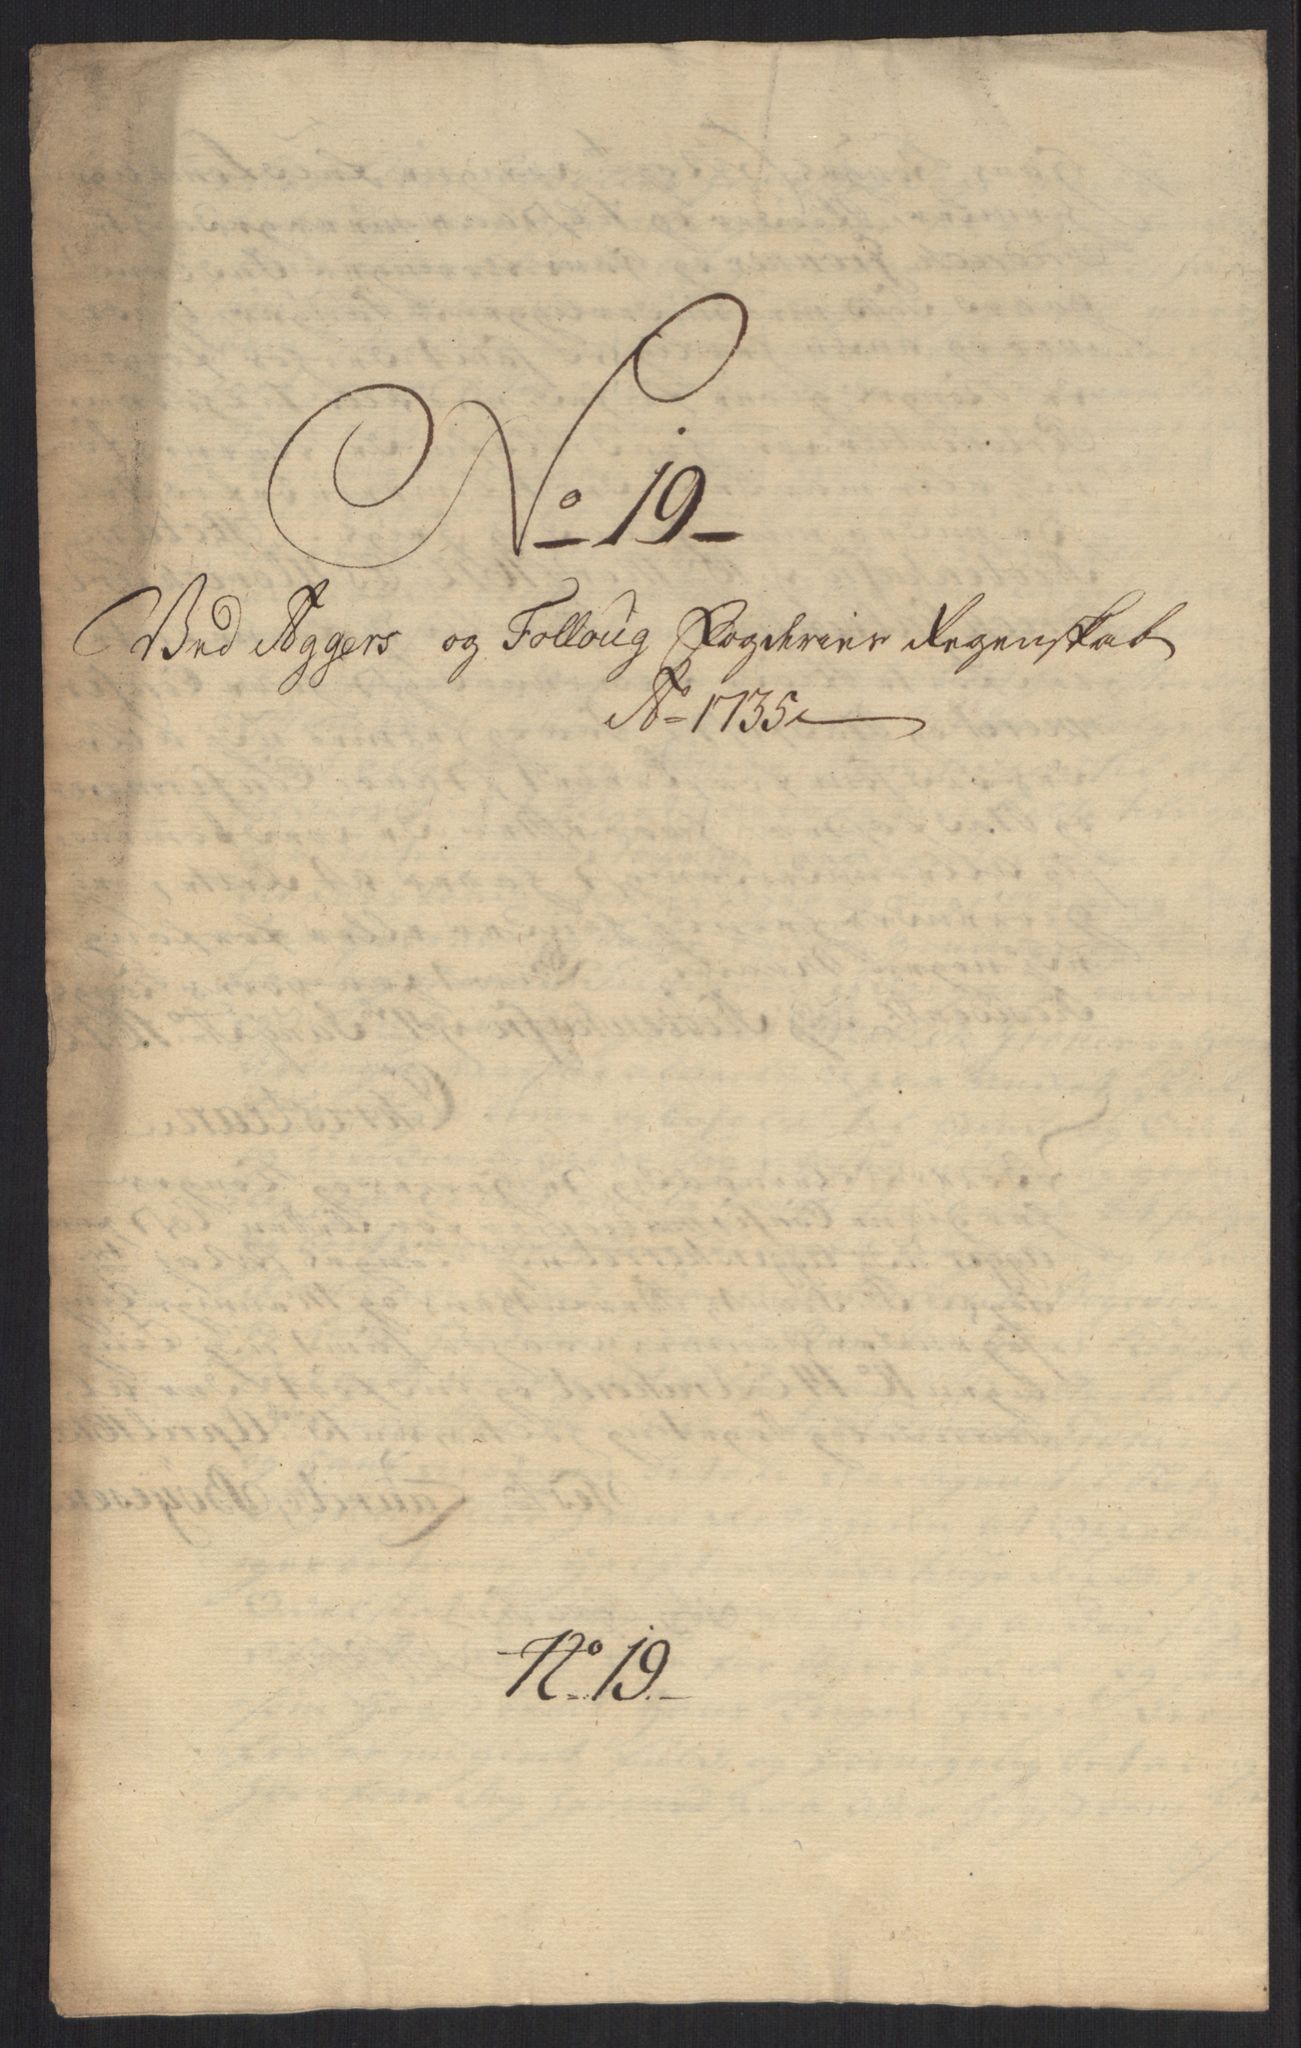 No 19
Ved Aggers og Folloug Fogderies Regenskab
Ao 1735
No 19